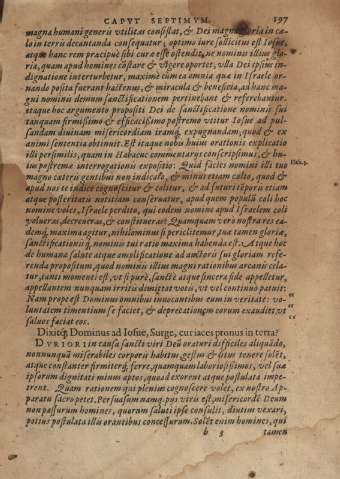 CAPVT SEPTIMVM. 197
magna humani generis vtilitas consistat, & Dei magna gloria in cæ-
lo in terris decantanda consequatur; optimo iure sollicitus est Iosue,
atque hanc rem præcipuè sibi curæ esse ostendit, ne nominis illius glo-
ria, quam apud homines cõstare & vigere oportet, vlla Dei ipsius in-
dignatione interturbetur, maximè cùm ea omnia quæ in Israele or-
nando posita fuerant hactenus, & miracula & beneficia, ad hanc ma-
gni nominis diuinam sanctificationem pertineant & referebantur.
itaque hoc argumento proposito Dei de sanctificatione nominis sui
tanquam firmissimo & efficacissimo postremò vtitur Iosue ad pul-
sandam diuinam misericordiam iramq́; expugnandam, quod & ex
animi sententia obtinuit. Est itaque nobis huius orationis explicatio
illi persimilis, quam in Habacuc commentarijs conscripsimus, & hu-
ius postrema interrogationis expositio: Quid facies nomini illi tuo
magno cæteris gentibus non indicato, & minus etiam culto, quod &
apud nos te indice cognoscitur & colitur, & ad futuri tẽporis etiam
atque posteritatis notitiam conseruatur, apud quem populũ coli hoc
nomine voles, Israele perdito, qui eodem nomine apud Israelem coli
volueras, decreueras, & constitueras? Quamquam vero nostra res ea-
demq́; maxima agitur, nihilominus si periclitemur, tuæ tamen gloriæ,
sanctificationisq́; nominis tui ratio maxima habenda est. Atque hoc
de humana salute atque amplificatione ad auctoris sui gloriam refe-
renda propositum, quod nominis illius magni rationibus arcanis cela-
tur, tanti momenti est, vt si purè, sanctè atque sincerè fide appelletur,
appellantem nunquam irritis dimittat votis, vt vel continuò patuit:
Nam prope est Dominus omnibus inuocantibus eum in veritate: vo-
luntatem timentium se faciet, & deprecationem eorum exaudiet, vt
saluos faciat eos.
Dixitq́; Dominus ad Iosue, Surge, cur iaces pronus in terra?
DVRIORI in causa sancti viri Deũ oraturi difficiles aliquãdo,
nonnunquã miserabiles corporis habitus, gestus & situs tenere solẽt,
atque constanter firmiterq́; ferre, quamquam laboriosissimos, vel suæ
ipsorum dignitati minus aptos, quoad exorent atque postulata impe-
trent. Quam rationem qui pleniùs cognoscere volet, ex nostro Ap-
paratu sacro petet. Persuasum namq́ue pijs viris est, misericordẽ Deum
non passurum homines, quorum saluti ipse consulit, diutius vexari,
potius postulata illis orantibus concessurum. Solẽt enim homines, qui
b 3 tamen